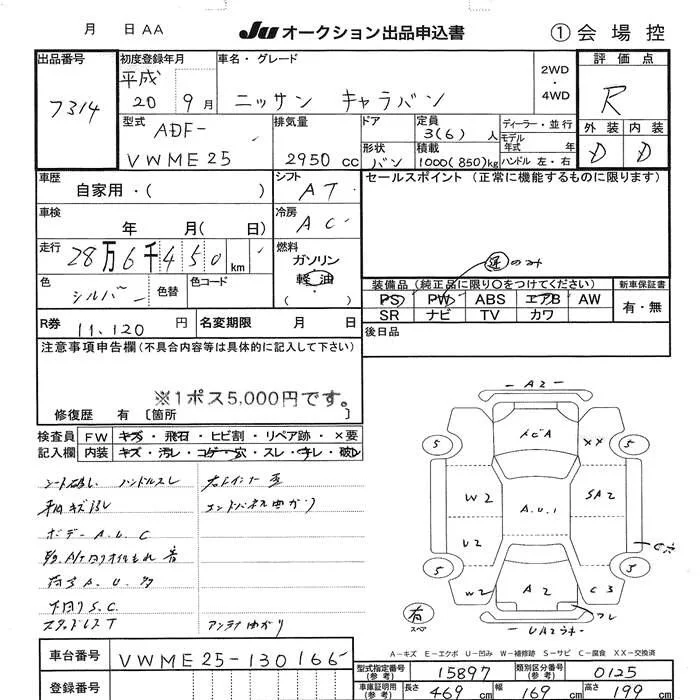 月 日 AA JU オークション出品申込書 ① 会場控
出品番号 初度登録年月 車名・グレード 評価点
7314 平成 20 9月 ニッサン キャラバン 2WD ・ 4WD R
型式 排気量 ドア 定員 3(6) 人 ディーラー・並行 外装 内装
ADF- VWME25 2950 cc 形状 バン 積載 1000(850)kg モデル年式 年 ハンドル 左・右 D D
車歴 自家用・( ) シフト AT セールスポイント (正常に機能するものに限ります)
車検 年 月( 日) 冷房 AC
走行 28万6千450 km 燃料 ガソリン 軽油
色 シルバー 色替 色コード
装備品 (純正品に限り○をつけてください) 新車保証書
PS PW ABS エアB AW 有・無
SR ナビ TV カワ
R券 11,120 円 名変期限 月 日 後日品
注意事項申告欄 (不具合内容等は具体的に記入して下さい)
※1ポス5,000円です。
修復歴 有 〔箇所 〕
検査員 FW キズ・飛石・ヒビ割・リペア跡・×要
記入欄 内装 キズ・汚レ・コゲ・穴・スレ・キレ・破レ
ハンドルスレ
ボデー A.U.C
下回りS.C.
スタッドレスT アンテナ曲がり
A2
A
XX
5 5
W2 A.U.1 SA2
U2
5 5
W2 A2 C3
有 スペア
A－キズ E－エクボ U－凹み W－補修跡 S－サビ C－腐食 XX－交換済
車台番号 VWME25-130166
登録番号
型式指定番号(参考) 15897 類別区分番号(参考) 0125
車庫証明用(参考) 長さ 469 cm 幅 169 cm 高さ 199 cm